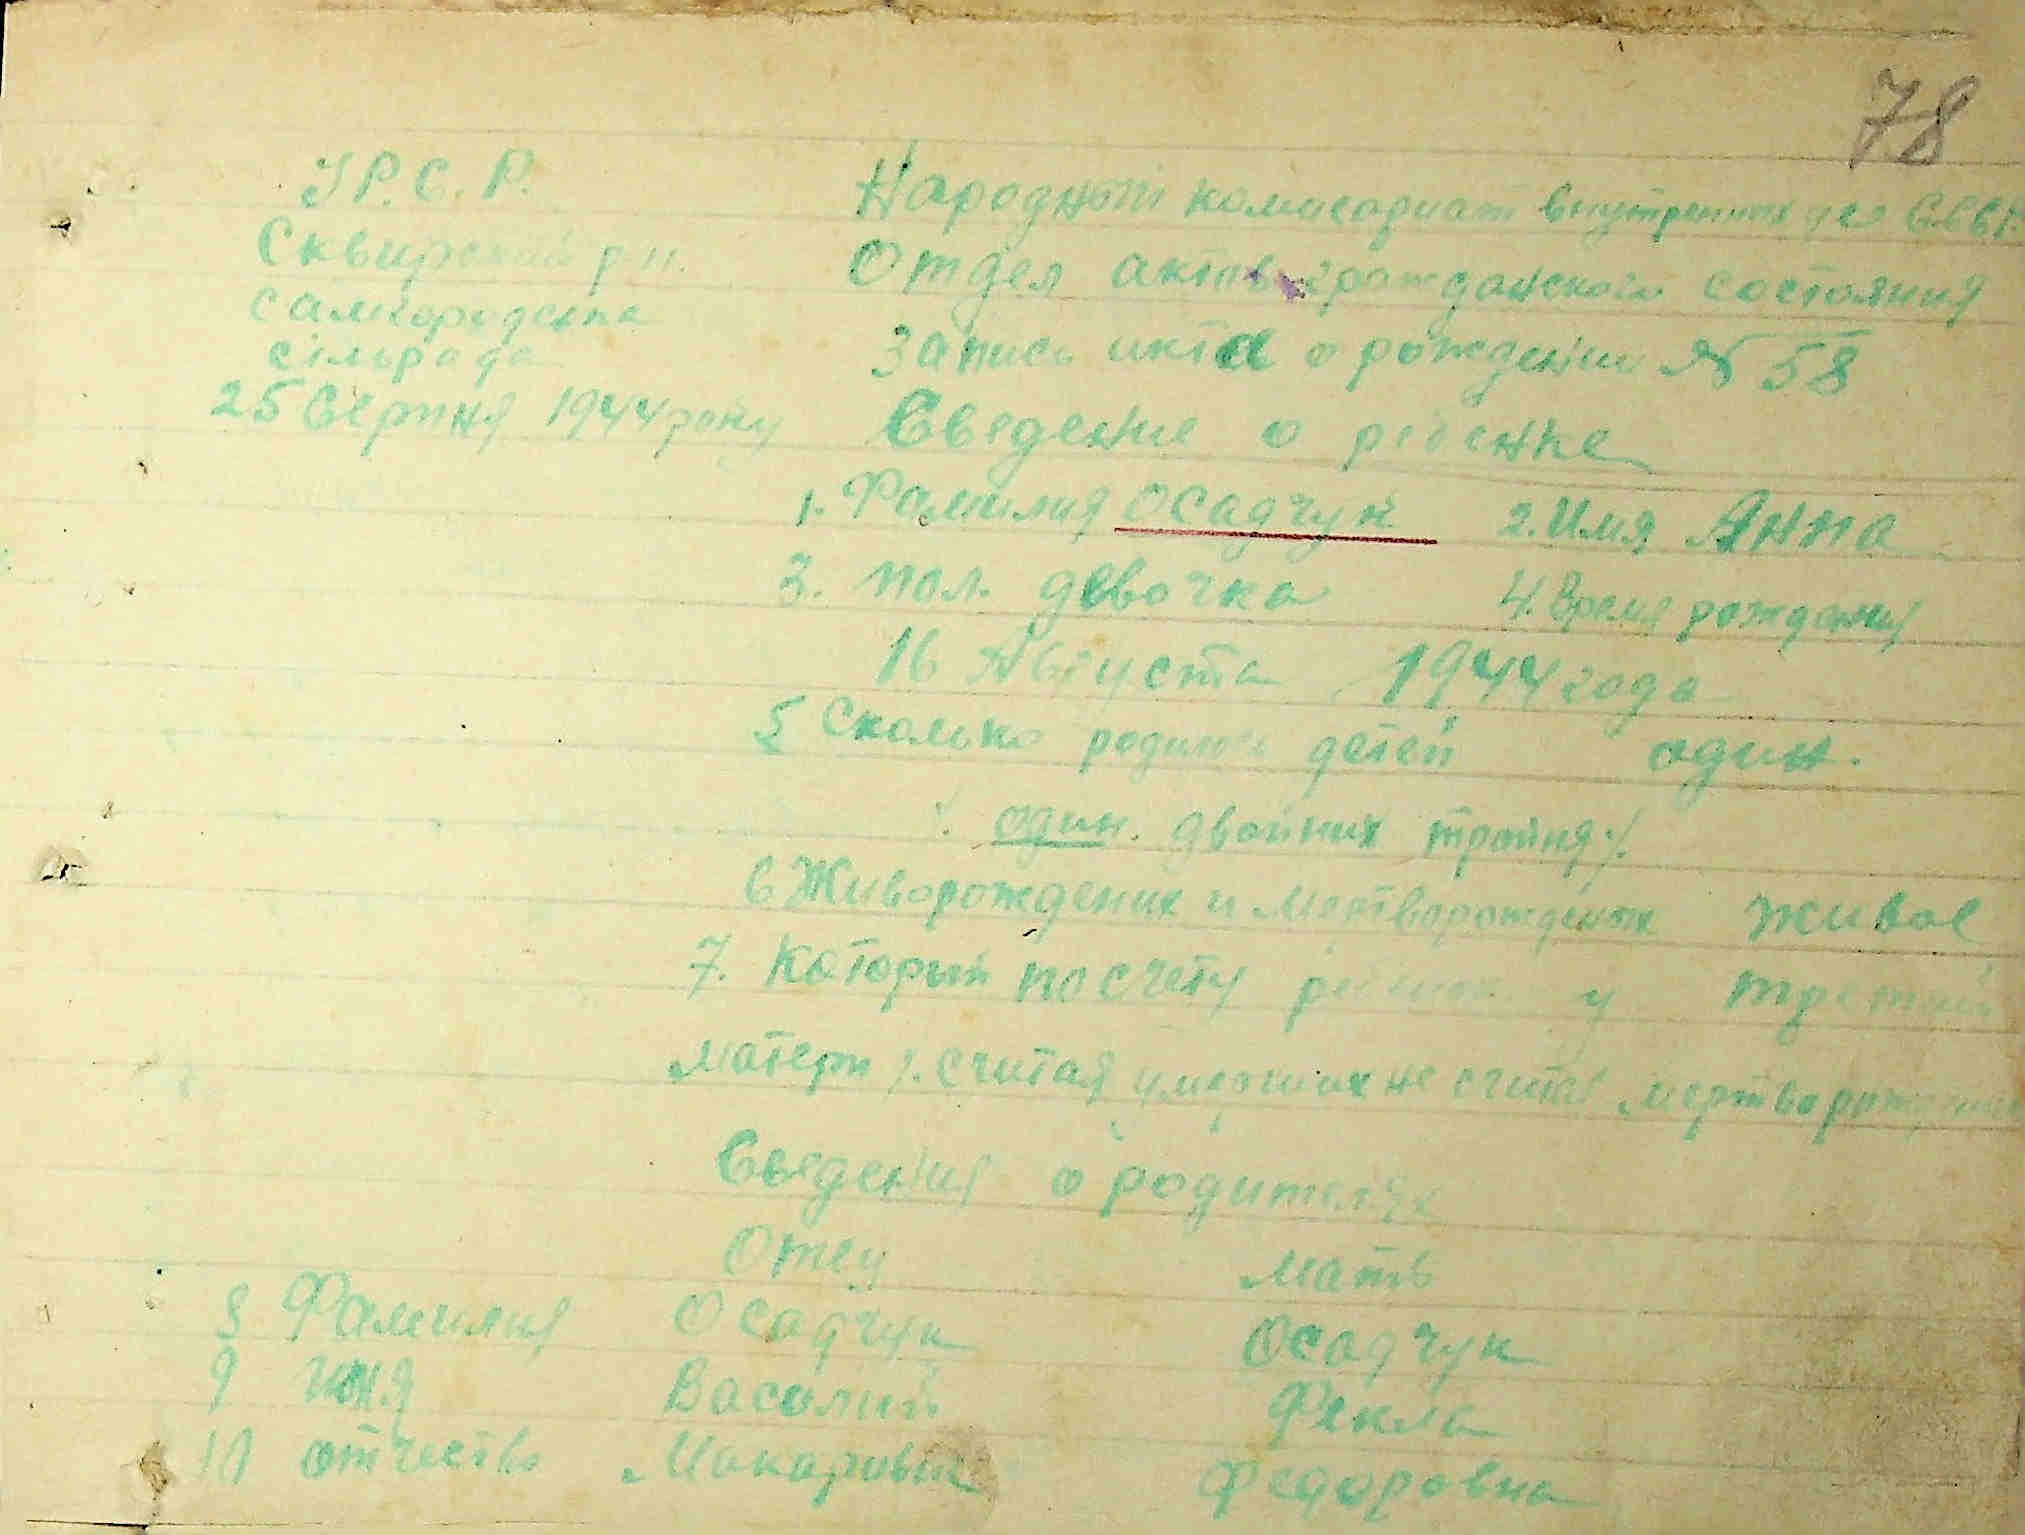 78
УР.С.Р.
Сквирский р-н.
Самгородська
сільрада
25 Серпня 1944 року
Народный комисариат внутренних дел
Отдел актов гражданского состояния
Запись акта о рождении № 58
Сведение о ребенке
1. Фамилия Осадчук 2. Имя Анна
3. пол. девочка 4. Время рождения
16 Августа 1944 года
5 Сколько родилось детей один.
/. один. двойних тройня ./.
6 Живорожденик и мертворожденик живое
7. Который по счету ребенок у третий
матери /. считая умерших не считая
Сведения о родителях
Отец Мать
8 Фамилия Осадчук Осадчук
9 имя Василий Фекла
10 отчество Макаривич Федоровна